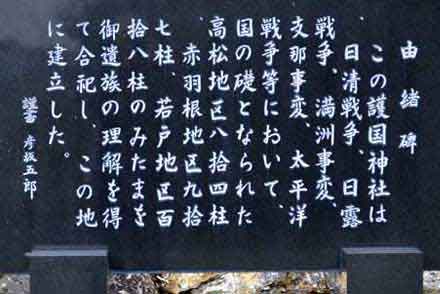 由緒碑
この護国神社は
、日清戦争、日露
戦争、満洲事変、
支那事変、太平洋
戦争等において、
国の礎となられた
高松地区八十四柱
、赤羽根地区九拾
七柱、若戸地区百
拾八柱のみたまを
御遺族の理解を得
て合祀し、この地
に建立した。
謹書 彦坂五郎